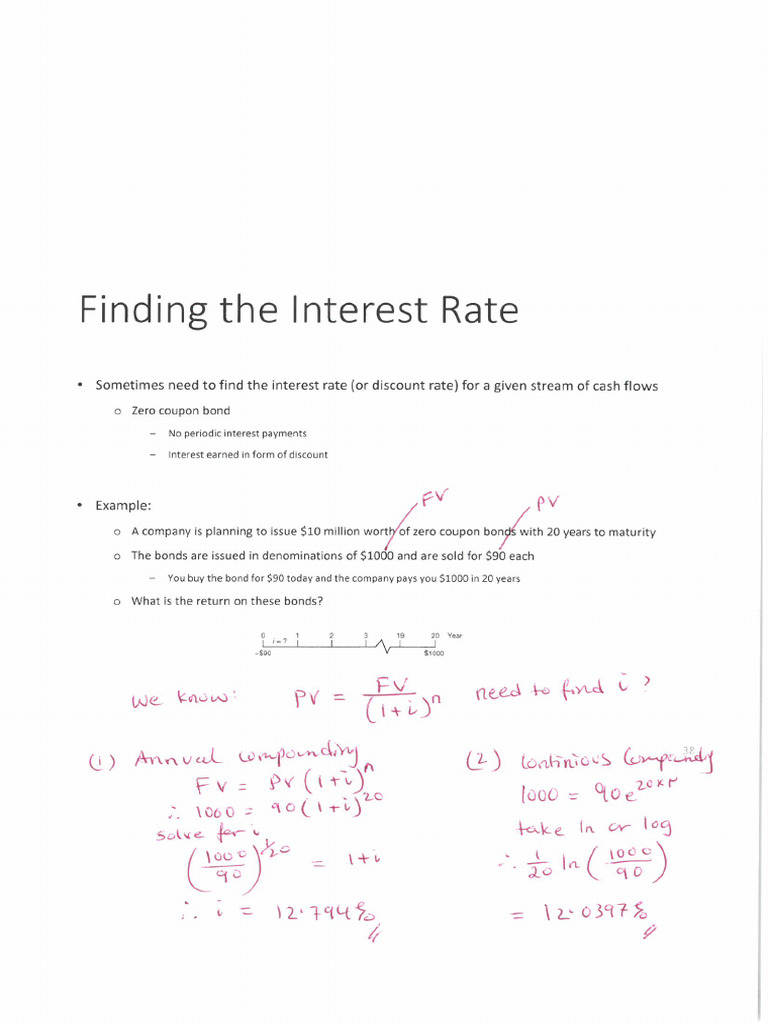 Finding the Interest Rate
• Sometimes need to find the interest rate (or discount rate) for a given stream of cash flows
o Zero coupon bond
– No periodic interest payments
– Interest earned in form of discount
FV PV
• Example:
o A company is planning to issue $10 million worth of zero coupon bonds with 20 years to maturity
o The bonds are issued in denominations of $1000 and are sold for $90 each
– You buy the bond for $90 today and the company pays you $1000 in 20 years
o What is the return on these bonds?
0 i = ? 1 2 3 19 20 Year
–$90 $1000
We know: PV = FV/(1+i)^n need to find i ?
38
(1) Annual compounding
FV = PV(1+i)^n
∴ 1000 = 90(1+i)^20
Solve for i
(1000/90)^1/20 = 1+i
∴ i = 12.794%
(2) Continious Compandy
1000 = 90e^20×r
take ln or log
∴ 1/20 ln(1000/90)
= 12.0397%